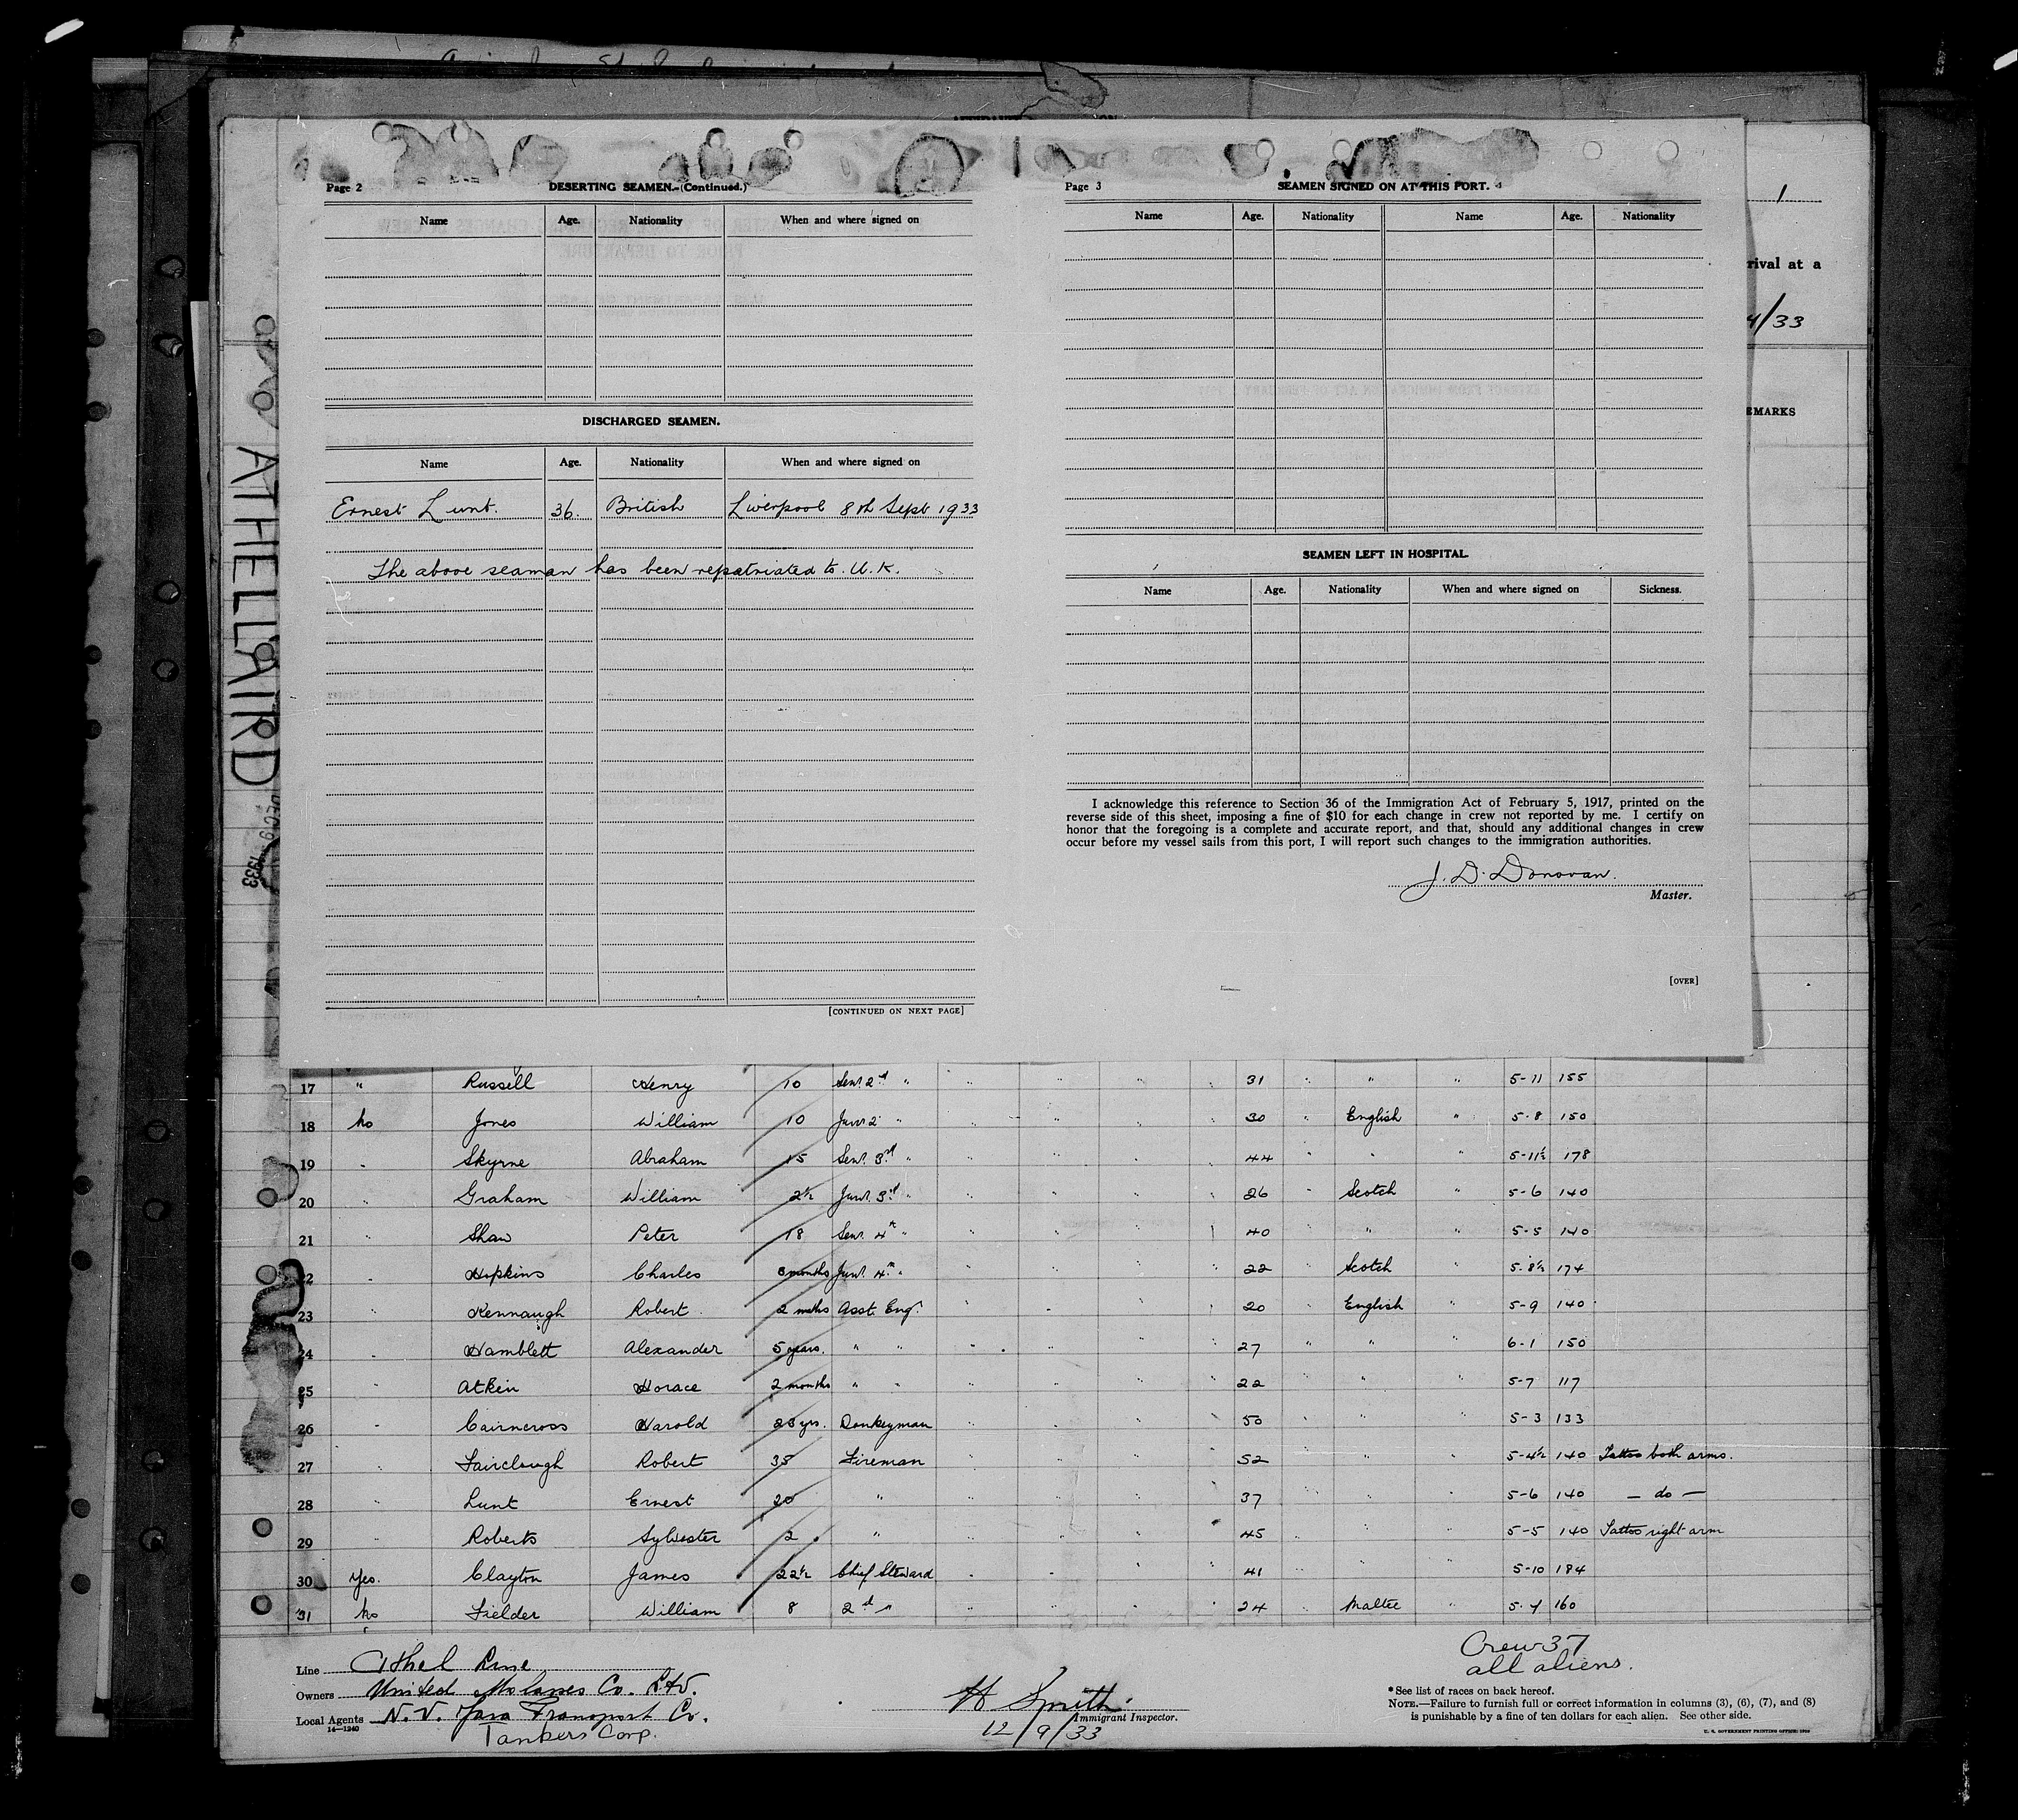 Page 2
DESERTING SEAMEN.-(Continued.)
Name Age. Nationality When and where signed on
DISCHARGED SEAMEN.
Name Age. Nationality When and where signed on
Ernest Lunt. 36. British Liverpool 8th Sept 1933
The above seaman has been repatriated to U.K.
[CONTINUED ON NEXT PAGE]
Page 3
SEAMEN SIGNED ON AT THIS PORT.
Name Age. Nationality Name Age. Nationality
SEAMEN LEFT IN HOSPITAL.
Name Age. Nationality When and where signed on Sickness.
I acknowledge this reference to Section 36 of the Immigration Act of February 5, 1917, printed on the
reverse side of this sheet, imposing a fine of $10 for each change in crew not reported by me. I certify on
honor that the foregoing is a complete and accurate report, and that, should any additional changes in crew
occur before my vessel sails from this port, I will report such changes to the immigration authorities.
J. D. Donovan.
Master.
[OVER]
1
rival at a
4/33
EMARKS
ATHELLAIRD
DEC 9 1933
17 " Russell Henry 10 Senr 2nd " 31 " " 5-11 155
18 No Jones William 10 Junr 2 " 30 " English " 5-8 150
19 " Skyrne Abraham 15 Senr. 3rd " 44 " " " 5-11½ 178
20 " Graham William 2½ Junr. 3rd " 26 " Scotch " 5-6 140
21 " Shaw Peter 18 Senr. 4th " 40 " " 5-5 140
22 " Hopkins Charles months Junr. 4th " 22 " Scotch " 5-8½ 174
23 " Kennaugh Robert 2 mths Asst. Engr. 20 " English " 5-9 140
24 " Hamblett Alexander 5 years. " " 27 " " 6-1 150
25 " Atkin Horace 2 months " " 22 " " 5-7 117
26 " Cairncross Harold 28 yrs. Donkeyman 50 " " 5-3 133
27 " Fairclough Robert 35 Fireman 52 " " 5-4½ 140 Tattoo both arms.
28 " Lunt Ernest 20 " 37 " " 5-6 140 — do —
29 " Roberts Sylvester 2 " 45 " " 5-5 140 Tattoo right arm
30 Yes. Clayton James 22½ Chief Steward 41 " " 5-10 184
31 No Fielder William 8 2nd " 24 " Maltee " 5-7 160
Line Athel Line
Owners United Molasses Co. Ltd.
Local Agents N. V. Java Transport Co.
14—1240
Tankers Corp.
H Smith
Immigrant Inspector.
12/9/33
Crew 37
all aliens.
* See list of races on back hereof.
NOTE.—Failure to furnish full or correct information in columns (3), (6), (7), and (8)
is punishable by a fine of ten dollars for each alien. See other side.
U. S. GOVERNMENT PRINTING OFFICE: